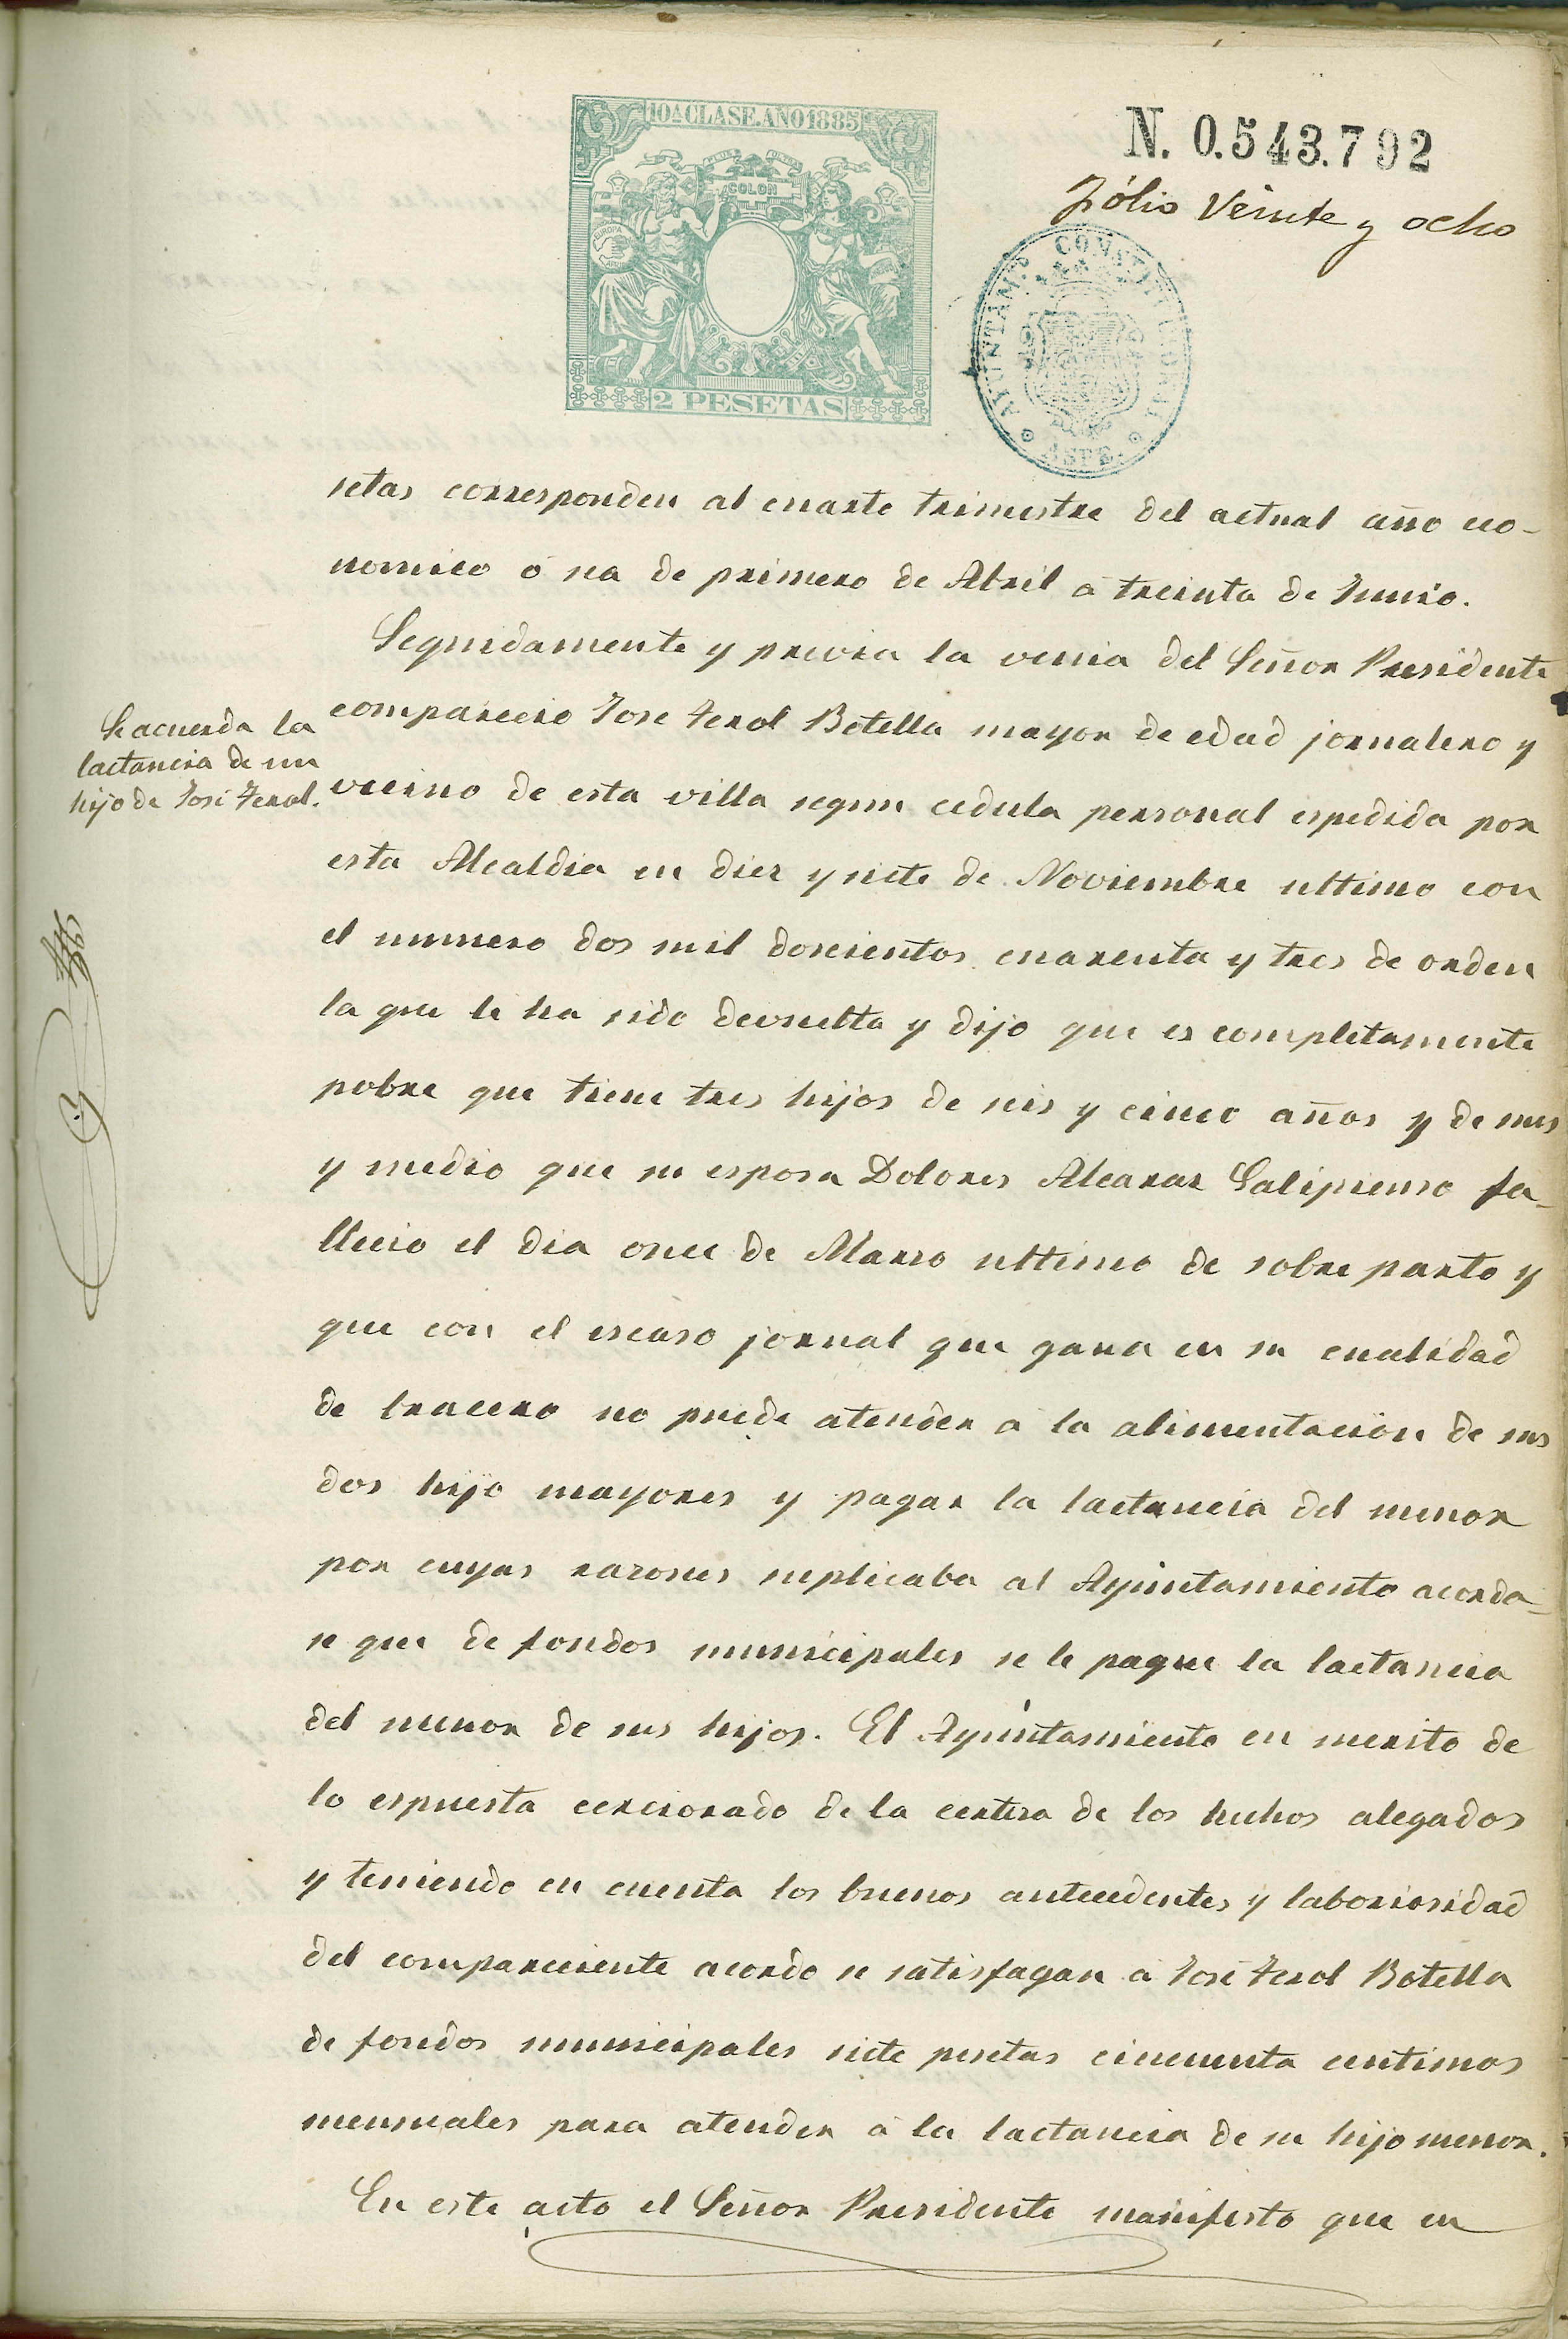 10ª CLASE. AÑO 1885
PLUS ULTRA
COLON
EUROPA
2 PESETAS
N. 0.543.792
Fólio Veinte y ocho
AYUNTAMTO CONSTITUCIONAL
ASPE.
setas corresponden al cuarto trimestre del actual año eco-
nomico ó sea de primero de Abril á treinta de Junio.
Seguidamente y previa la venia del Señor Presidente
comparecio Jose Ferol Botella mayor de edad jornalero y
vecino de esta villa segun cedula personal espedida por
esta Alcaldia en diez y siete de Noviembre ultimo con
el numero dos mil doscientos cuarenta y tres de orden
la que le ha sido devuelta y dijo que es completamente
pobre que tiene tres hijos de seis y cinco años y de mes
y medio que su esposa Dolores Alcaraz Galipienso fa-
llecio el dia once de Marzo ultimo de sobre parto y
que con el escaso jornal que gana en su cualidad
de bracero no puede atender á la alimentación de sus
dos hijo mayores y pagar la lactancia del menor
por cuyas razones suplicaba al Ayuntamiento acorda-
se que de fondos municipales se le pague la lactancia
del menor de sus hijos. El Ayuntamiento en merito de
lo espuesta cerciorado de la certeza de los hechos alegados
y teniendo en cuenta los buenos antecedentes y laboriosidad
del compareciente acordo se satisfagan á José Ferol Botella
de fondos municipales siete pesetas cincuenta centimos
mensuales para atender á la lactancia de su hijo menor.
En este acto el Señor Presidente manifesto que en
Se acuerda la
lactancia de un
hijo de José Ferol.